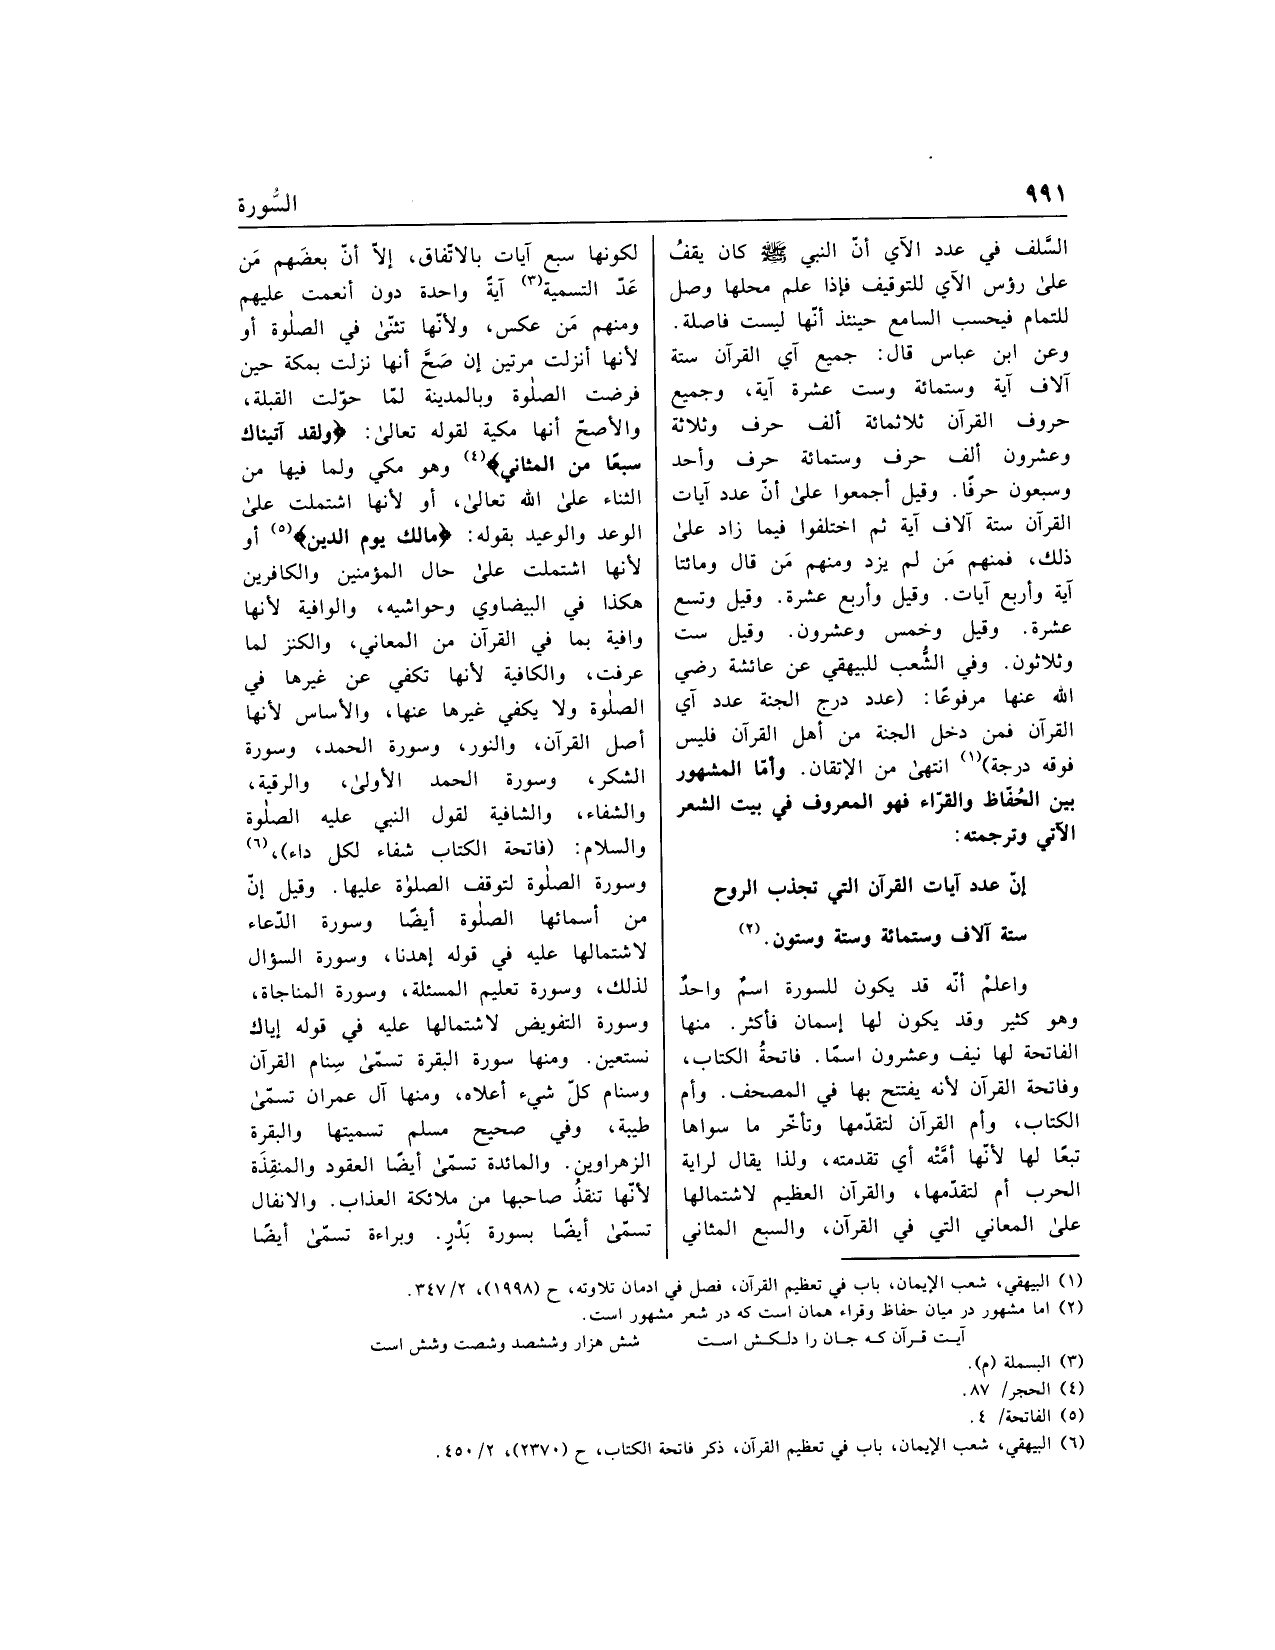 ٩٩١
السُّورة
السَّلف في عدد الآي أنّ النبي ﷺ كان يقفُ
علىٰ رؤس الآي للتوقيف فإذا علم محلها وصل
للتمام فيحسب السامع حينئذ أنّها ليست فاصلة.
وعن ابن عباس قال: جميع آي القرآن ستة
آلاف آية وستمائة وست عشرة آية، وجميع
حروف القرآن ثلاثمائة ألف حرف وثلاثة
وعشرون ألف حرف وستمائة حرف وأحد
وسبعون حرفًا. وقيل أجمعوا علىٰ أنّ عدد آيات
القرآن ستة آلاف آية ثم اختلفوا فيما زاد علىٰ
ذلك، فمنهم مَن لم يزد ومنهم مَن قال ومائتا
آية وأربع آيات. وقيل وأربع عشرة. وقيل وتسع
عشرة. وقيل وخمس وعشرون. وقيل ست
وثلاثون. وفي الشُّعب للبيهقي عن عائشة رضي
الله عنها مرفوعًا: (عدد درج الجنة عدد آي
القرآن فمن دخل الجنة من أهل القرآن فليس
فوقه درجة)(١) انتهىٰ من الإتقان. وأمّا المشهور
بين الحُفّاظ والقرّاء فهو المعروف في بيت الشعر
الآتي وترجمته:
إنّ عدد آيات القرآن التي تجذب الروح
ستة آلاف وستمائة وستة وستون.(٢)
واعلمْ أنّه قد يكون للسورة اسمٌ واحدٌ
وهو كثير وقد يكون لها إسمان فأكثر. منها
الفاتحة لها نيف وعشرون اسمًا. فاتحةُ الكتاب،
وفاتحة القرآن لأنه يفتتح بها في المصحف. وأم
الكتاب، وأم القرآن لتقدّمها وتأخّر ما سواها
تبعًا لها لأنّها أمَّتْه أي تقدمته، ولذا يقال لراية
الحرب أم لتقدّمها، والقرآن العظيم لاشتمالها
علىٰ المعاني التي في القرآن، والسبع المثاني
لكونها سبع آيات بالاتّفاق، إلاّ أنّ بعضَهم مَن
عَدّ التسمية(٣) آيةً واحدة دون أنعمت عليهم
ومنهم مَن عكس، ولأنّها تثنّىٰ في الصلٰوة أو
لأنها أنزلت مرتين إن صَحَّ أنها نزلت بمكة حين
فرضت الصلٰوة وبالمدينة لمّا حوّلت القبلة،
والأصحّ أنها مكية لقوله تعالىٰ: ﴿ولقد آتيناك
سبعًا من المثاني﴾(٤) وهو مكي ولما فيها من
الثناء علىٰ الله تعالىٰ، أو لأنها اشتملت علىٰ
الوعد والوعيد بقوله: ﴿مالك يوم الدين﴾(٥) أو
لأنها اشتملت علىٰ حال المؤمنين والكافرين
هكذا في البيضاوي وحواشيه، والوافية لأنها
وافية بما في القرآن من المعاني، والكنز لما
عرفت، والكافية لأنها تكفي عن غيرها في
الصلٰوة ولا يكفي غيرها عنها، والأساس لأنها
أصل القرآن، والنور، وسورة الحمد، وسورة
الشكر، وسورة الحمد الأولىٰ، والرقية،
والشفاء، والشافية لقول النبي عليه الصلٰوة
والسلام: (فاتحة الكتاب شفاء لكل داء)،(٦)
وسورة الصلٰوة لتوقف الصلوٰة عليها. وقيل إنّ
من أسمائها الصلٰوة أيضًا وسورة الدّعاء
لاشتمالها عليه في قوله إهدنا، وسورة السؤال
لذلك، وسورة تعليم المسئلة، وسورة المناجاة،
وسورة التفويض لاشتمالها عليه في قوله إياك
نستعين. ومنها سورة البقرة تسمّىٰ سِنام القرآن
وسنام كلّ شيء أعلاه، ومنها آل عمران تسمّىٰ
طيبة، وفي صحيح مسلم تسميتها والبقرة
الزهراوين. والمائدة تسمّىٰ أيضًا العقود والمنقِذَة
لأنّها تنقذُ صاحبها من ملائكة العذاب. والانفال
تسمّىٰ أيضًا بسورة بَدْرٍ. وبراءة تسمّىٰ أيضًا
(١) البيهقي، شعب الإيمان، باب في تعظيم القرآن، فصل في ادمان تلاوته، ح (١٩٩٨)، ٣٤٧/٢.
(٢) اما مشهور در ميان حفاظ وقراء همان است كه در شعر مشهور است.
آيـت قـرآن كـه جـان را دلـكـش اسـت شش هزار وششصد وشصت وشش است
(٣) البسملة (م).
(٤) الحجر/ ٨٧.
(٥) الفاتحة/ ٤.
(٦) البيهقي، شعب الإيمان، باب في تعظيم القرآن، ذكر فاتحة الكتاب، ح (٢٣٧٠)، ٤٥٠/٢.